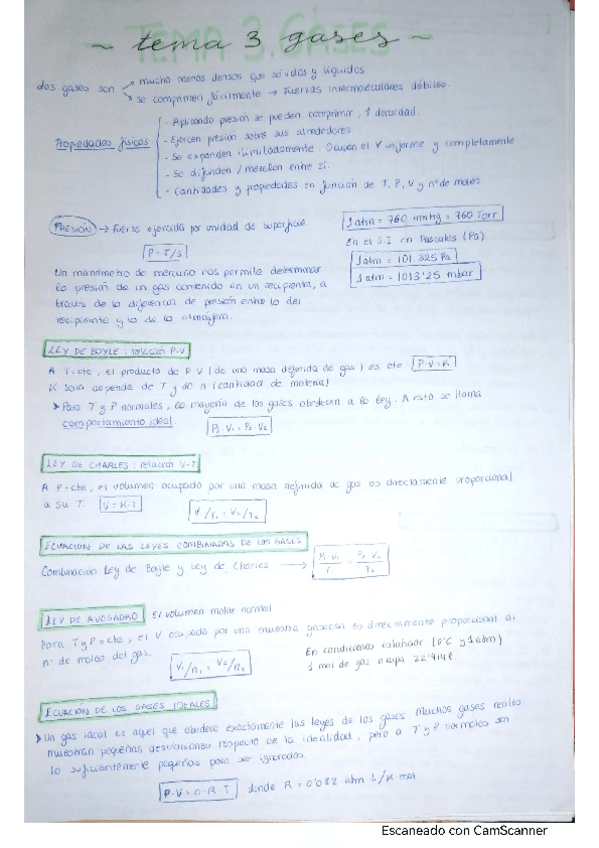 TEMA 3. GASES
~ tema 3 gases ~
Los gases son
mucho menos densos que sólidos y líquidos
se comprimen fácilmente → Fuerzas intermoleculares débiles.
Propiedades físicas
- Aplicando presión se pueden comprimir, ↑ densidad.
- Ejercen presión sobre sus alrededores
- Se expanden ilimitadamente. Ocupan el V uniforme y completamente
- Se difunden / mezclan entre sí.
- Cantidades y propiedades en función de T, P, V y nº de moles
PRESIÓN → Fuerza ejercida por unidad de superficie.
P = F/S
1 atm = 760 mmHg = 760 Torr
En el S.I en Pascales (Pa)
1 atm = 101.325 Pa
1 atm = 1013'25 mbar
Un manómetro de mercurio nos permite determinar
la presión de un gas contenido en un recipiente, a
través de la diferencia de presión entre la del
recipiente y la de la atmósfera.
LEY DE BOYLE: relación P-V
A T=cte, el producto de P·V (de una masa definida de gas) es cte P·V=K
K solo depende de T y de n (cantidad de materia)
➤ Para T y P normales, la mayoría de los gases obedecen a la ley. A esto se llama
comportamiento ideal. P₁·V₁ = P₂·V₂
LEY DE CHARLES: relación V-T
A P=cte, el volumen ocupado por una masa definida de gas es directamente proporcional
a su T. V=K·T V₁/T₁ = V₂/T₂
ECUACIÓN DE LAS LEYES COMBINADAS DE LOS GASES
Combinación Ley de Boyle y Ley de Charles → P₁·V₁/T₁ = P₂·V₂/T₂
LEY DE AVOGADRO El volumen molar normal
Para T y P = cte, el V ocupado por una muestra gaseosa es directamente proporcional al
nº de moles del gas. V₁/n₁ = V₂/n₂
En condiciones estándar (0ºC y 1 atm)
1 mol de gas ocupa 22'414 l.
ECUACIÓN DE LOS GASES IDEALES
➤ Un gas ideal es aquel que obedece exactamente las leyes de los gases. Muchos gases reales
muestran pequeñas desviaciones respecto de la idealidad, pero a T y P normales son
lo suficientemente pequeñas para ser ignoradas.
P·V = n·R·T donde R = 0'082 atm L/K·mol
Escaneado con CamScanner